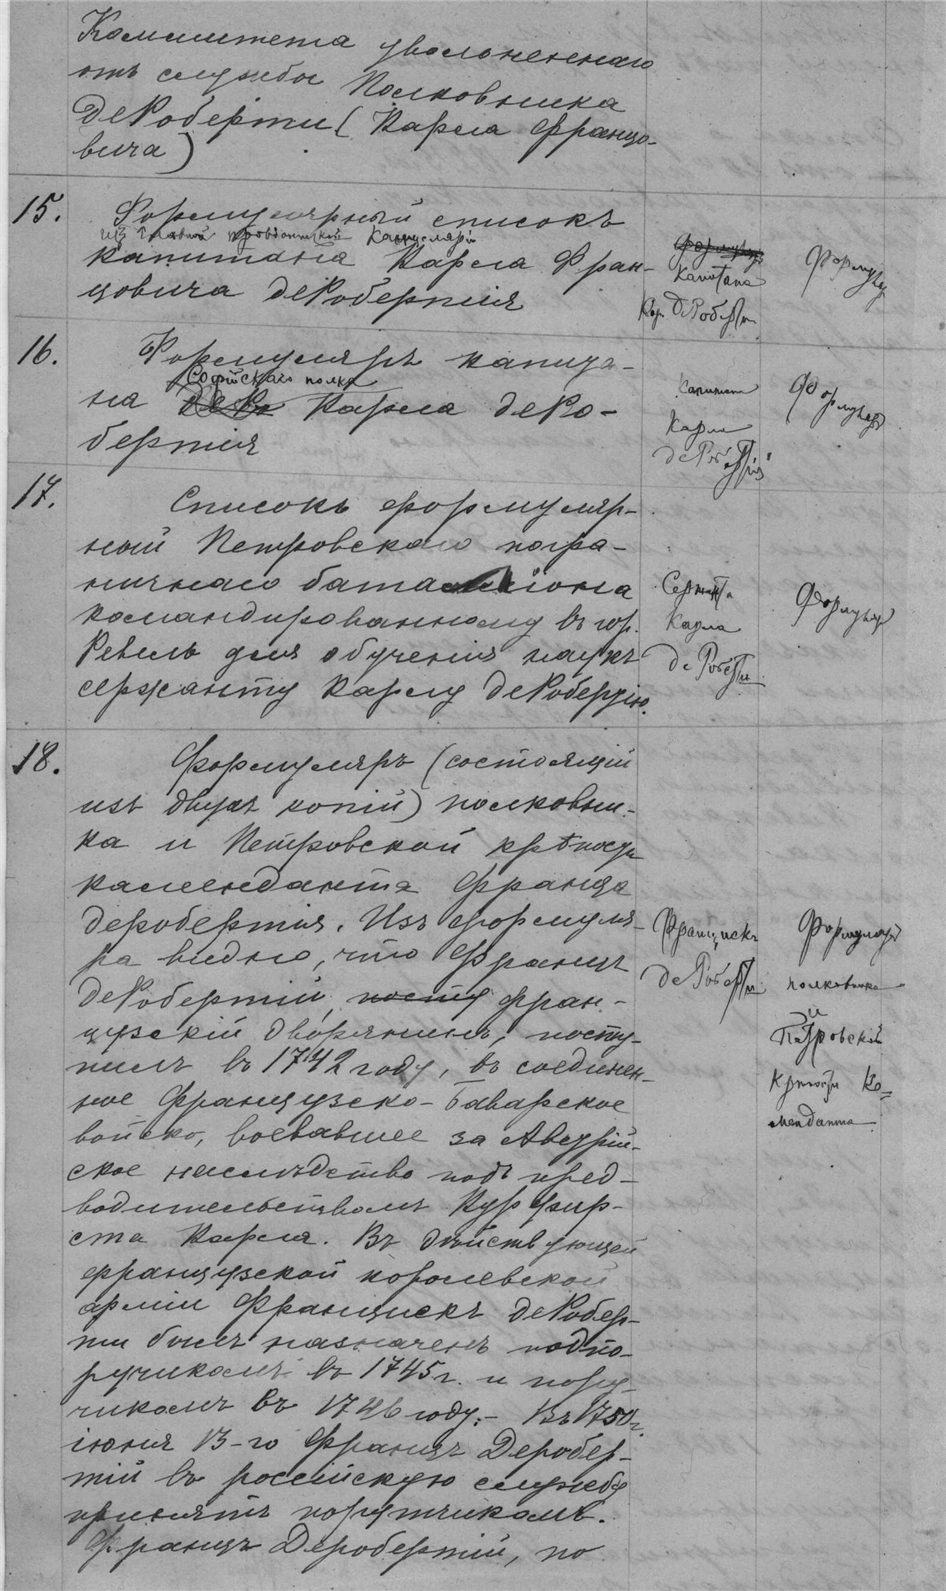 Коммитета уволоненнаго
отъ службы Полковника
ДеРоберти (Карла Францо-
вича)
15. Формулярный списокъ
из Главной провіантской Канцеляріи
капитана Карла Фран-
цовича деРобертія
Капитана
Кар. ДеРоберти
Формуляр
16. Формуляръ капита-
Софійскаго полка
на Карла деРо-
бертія
Капитан
Карл
деРобертій
Формуляръ
17. Списокъ формуляр-
ный Петровскаго погра-
ничнаго баталліона
командированному въ гор.
Ревель для обученія наукъ
сержанту Карлу деРобертію.
Сержанта
Карла
деРоберти
Формуляр
18. Формуляръ (состоящій
изъ двухъ копій) полковни-
ка и Петровской крѣпости
каменданта Франца
деробертія. Изъ формуля-
ра видно, что Францъ
деРобертій, посту фран-
цузскій дворянинъ, посту-
пилъ въ 1742 году, въ соединен-
ное Французско-Баварское
войско, воевавшее за Австрій-
ское наслѣдство подъ пред-
водительствомъ Курфир-
ста Карла. Въ дѣйствующей
французской королевской
арміи Францискъ деРобер-
ти былъ назначенъ подпо-
ручикомъ въ 1745 г. и пору-
чикомъ въ 1746 году. – Въ 1750 г.
іюня 13-го Францъ Деробер-
тій въ россійскую службу
принятъ порутчикомъ.
Францъ Деробертій, по
Францискъ
деРоберти
Формуляръ
полковника
и
Петровской
Крѣпости Ко-
менданта